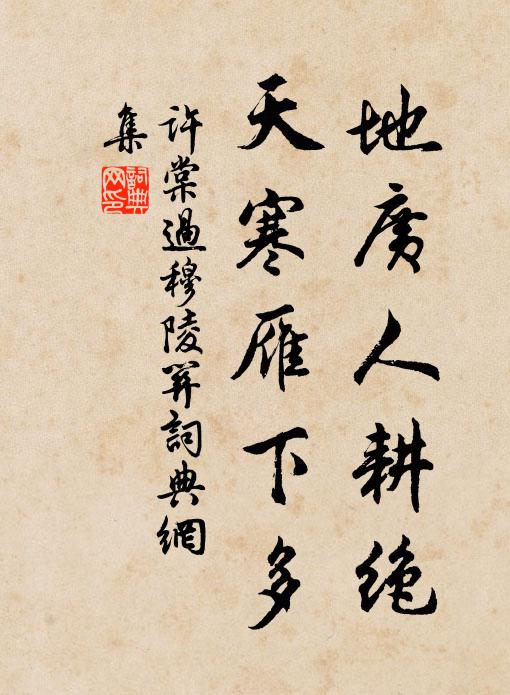 地廣人耕絶
天寒雁下多
許棠過穆陵關詞典網
集
詞典
网印